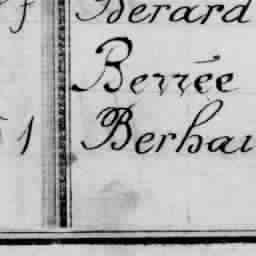 Berard
Berrée
1 Berhau